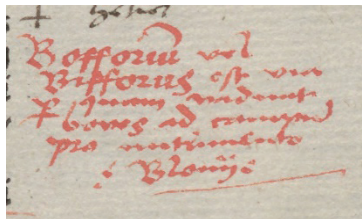 Bofforiū vel
Bifforus est via
ꝑ quam vadunt
boves ad campū
pro nutrimento
Blonije